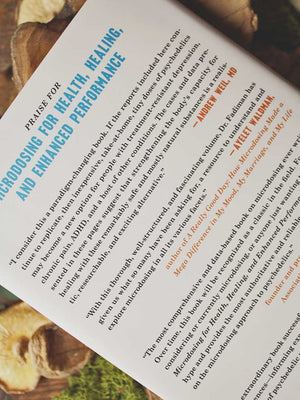 PRAISE FOR
MICRODOSING FOR HEALTH, HEALING,
AND ENHANCED PERFORMANCE
"I consider this a paradigm-changing book. If the reports included here con-
tinue to replicate, then inexpensive, take-at-home, tiny doses of psychedelics
may become a new option for people with treatment-resistant depression,
chronic pain, ADHD, and a host of other conditions. The cases and data pre-
sented in these pages suggest that strengthening the body's capacity for
healing with these remarkably safe and mostly natural substances is a realis-
tic, researchable, and exciting alternative."
—ANDREW WEIL, MD
"With this thorough, well-structured, and fascinating volume, Dr. Fadiman has
given us what so many have been asking for: a resource to understand and
explore microdosing in all its various facets."
—AYELET WALDMAN,
author of A Really Good Day: How Microdosing Made a
Mega Difference in My Mood, My Marriage, and My Life
"The most comprehensive and data-based book on microdosing ever
Over time, this book will be recognized as a classic in the field.
considering or currently microdosing, or anyone just wanting
Microdosing for Health, Healing, and Enhanced Performance
hype and provides the most authoritative and reliable
on the microdosing approach to psychedelics."
founder and pres
Associati
extraordinary book success
ences—informing